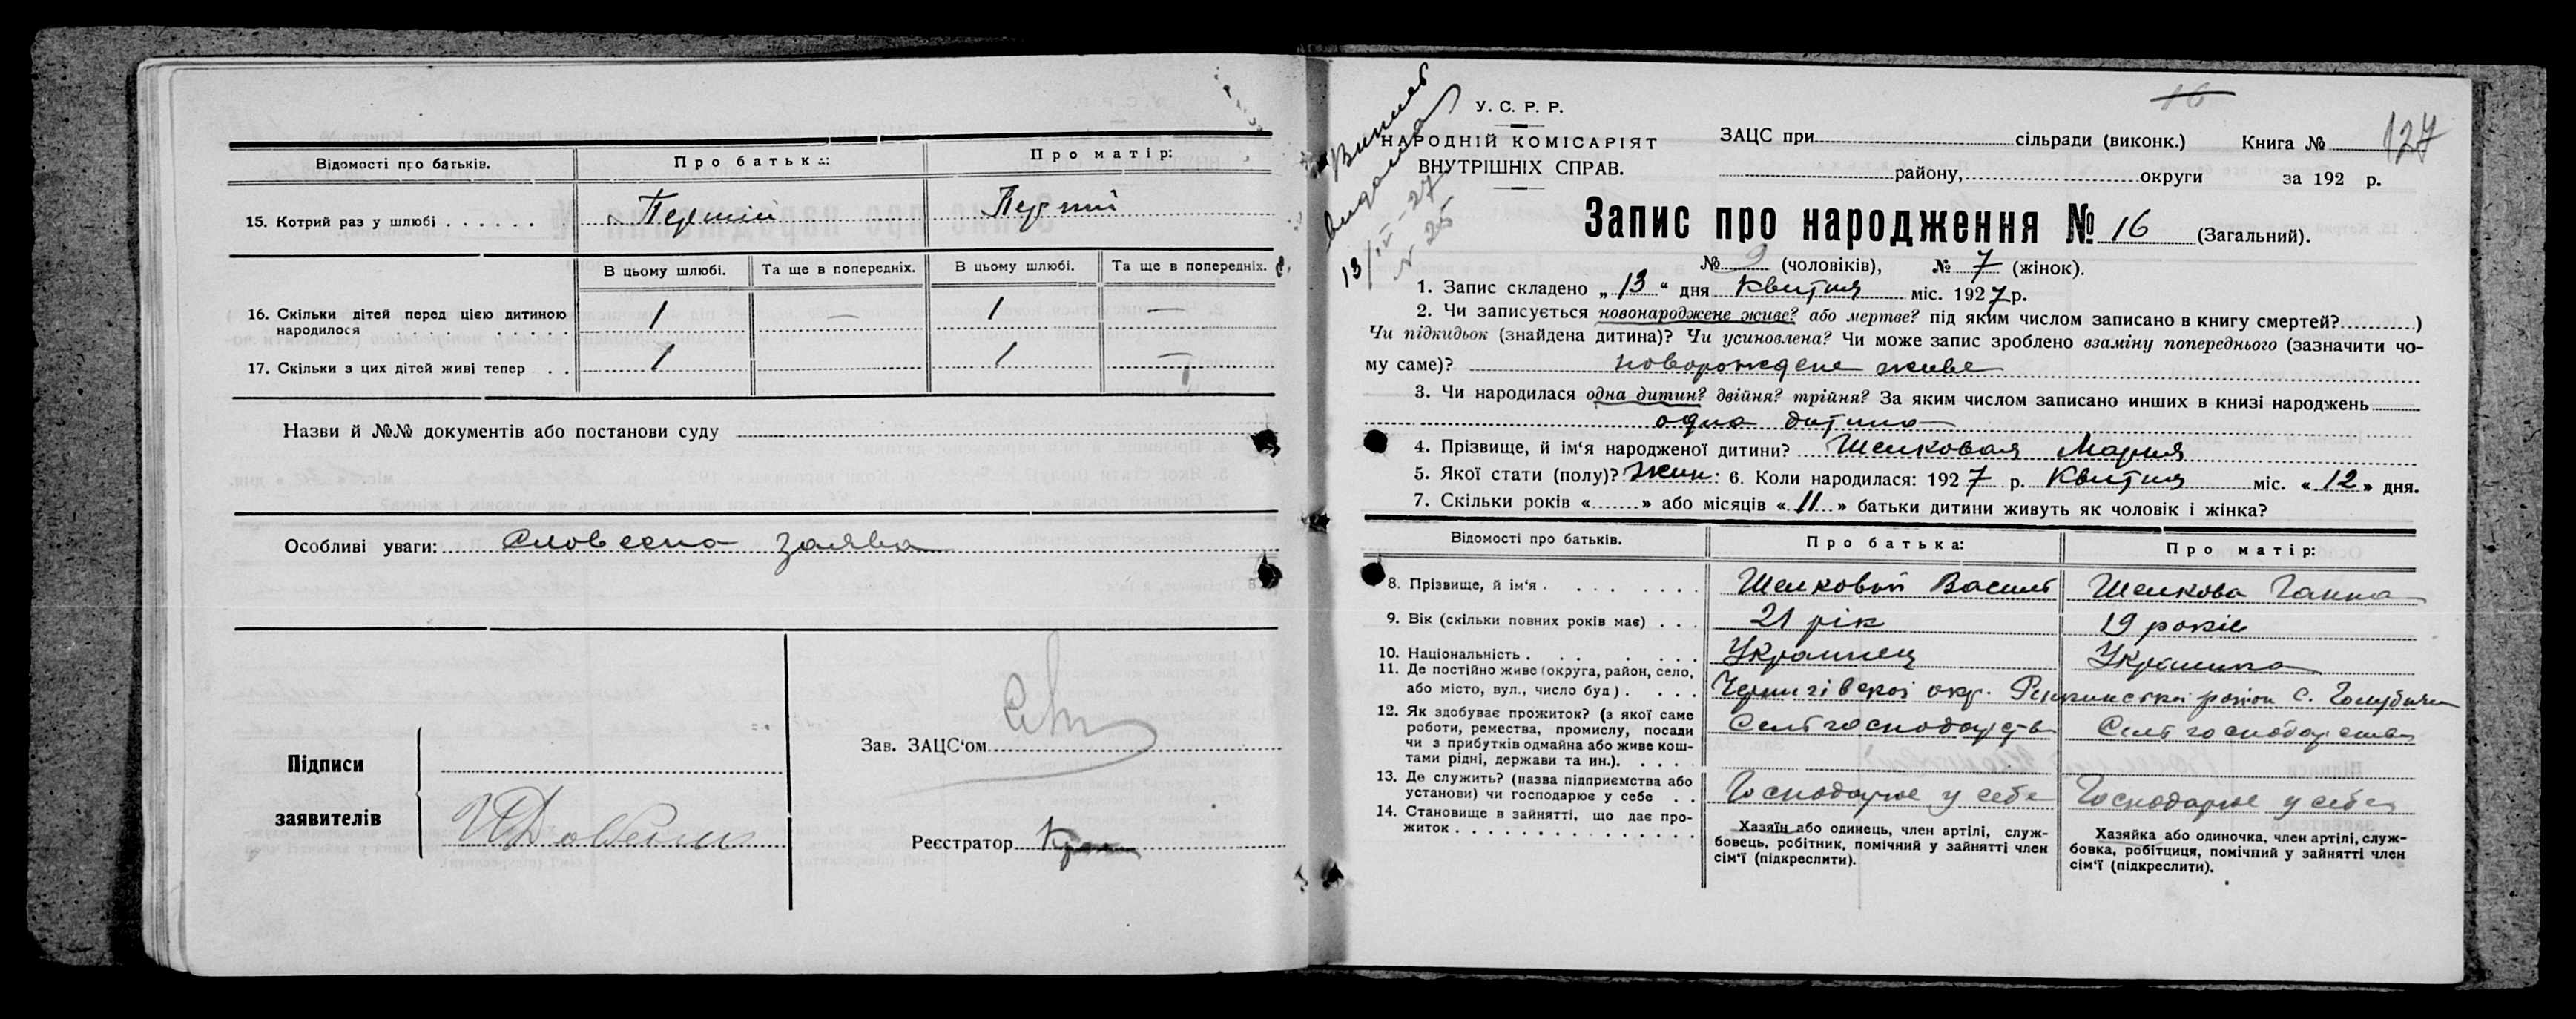 Відомості про батьків. Про батька: Про матір:
15. Котрий раз у шлюбі . . . . . . . Перший Перший
В цьому шлюбі. Та ще в попередніх. В цьому шлюбі. Та ще в попередніх.
16. Скільки дітей перед цією дитиною 1 — 1 —
народилося . . . . . . . . .
17. Скільки з цих дітей живі тепер . . 1 1 —
Назви й №№ документів або постанови суду
Особливі уваги: Словесна заява
Зав. ЗАЦС'ом
Підписи
заявителів
Реєстратор
Випись
видана
13/IV-27
№ 25
16
127
У. С. Р. Р.
НАРОДНІЙ КОМІСАРІЯТ
ВНУТРІШНІХ СПРАВ.
ЗАЦС при сільради (виконк.) Книга №
району, округи за 192 р.
Запис про народження № 16 (Загальний).
№ 9 (чоловіків), № 7 (жінок).
1. Запис складено „ 13 “ дня Квітня міс. 1927 р.
2. Чи записується новонароджене живе? або мертве? під яким числом записано в книгу смертей? )
Чи підкидьок (знайдена дитина)? Чи усиновлена? Чи може запис зроблено взаміну попереднього (зазначити чо-
му саме)? новорожденe живе
3. Чи народилася одна дитин? двійня? трійня? За яким числом записано инших в книзі народжень
одна дитина
4. Прізвище, й ім'я народженої дитини? Шелковая Мария
5. Якої стати (полу)? жин: 6. Коли народилася: 1927 р. Квітня міс. « 12 » дня.
7. Скільки років « » або місяців « 11 » батьки дитини живуть як чоловік і жінка?
Відомості про батьків. Про батька: Про матір:
8. Прізвище, й ім'я . . . . . . Шелковый Василь Шелкова Ганна
9. Вік (скільки повних років має) . . . 21 рік 19 років
10. Національність . . . . . . . Украинец Украинка
11. Де постійно живе (округа, район, село,
або місто, вул., число буд) . . . . Чернигівской окр. район с. Голубичи
12. Як здобуває прожиток? (з якої саме
роботи, ремества, промислу, посади Сельгосподарств Сельгосподарства
чи з прибутків одмайна або живе кош-
тами рідні, держави та ин.). . . . .
13. Де служить? (назва підприємства або
установи) чи господарює у себе . . Господарює у себе Господарює у себе
14. Становище в зайнятті, що дає про-
житок . . . . . . . . . . . . . . . .
Хазяїн або одинець, член артілі, служ-
бовець, робітник, помічний у зайнятті член
сім'ї (підкреслити).
Хазяйка або одиночка, член артілі, служ-
бовка, робітциця, помічний у зайнятті член
сім'ї (підкреслити).